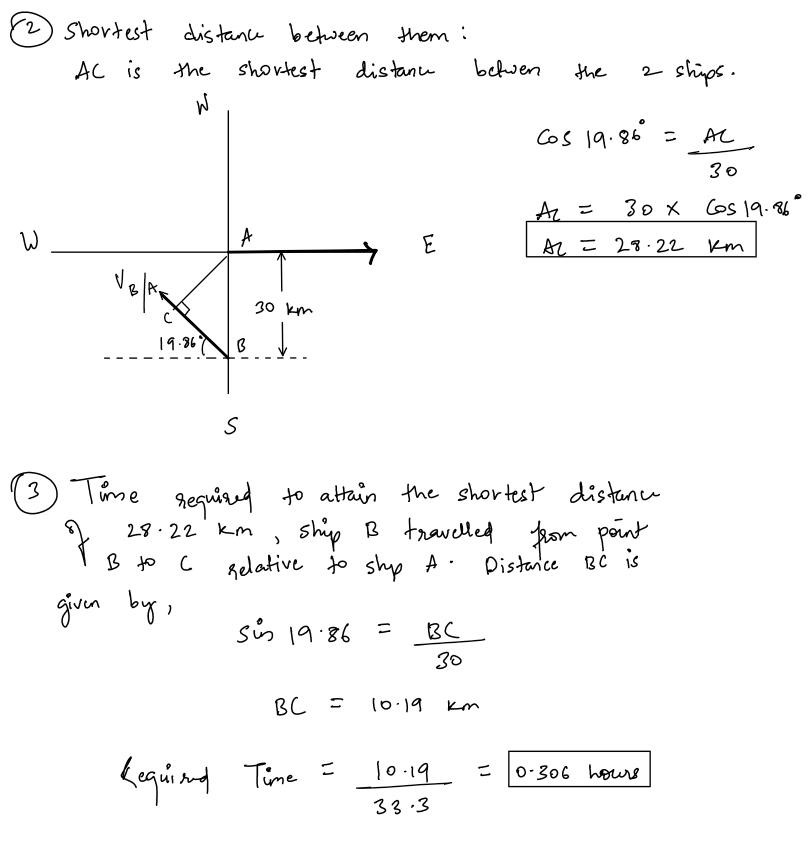 2 Shortest distance between them :
AC is the shortest distance between the 2 ships.
N
cos 19.86° = AC / 30
AC = 30 x cos 19.86°
AC = 28.22 km
W A E
V B/A
C 30 km
19.86° B
S
3 Time required to attain the shortest distance
of 28.22 km, ship B travelled from point
B to C relative to ship A. Distance BC is
given by,
sin 19.86 = BC / 30
BC = 10.19 km
Required Time = 10.19 / 33.3 = 0.306 hours